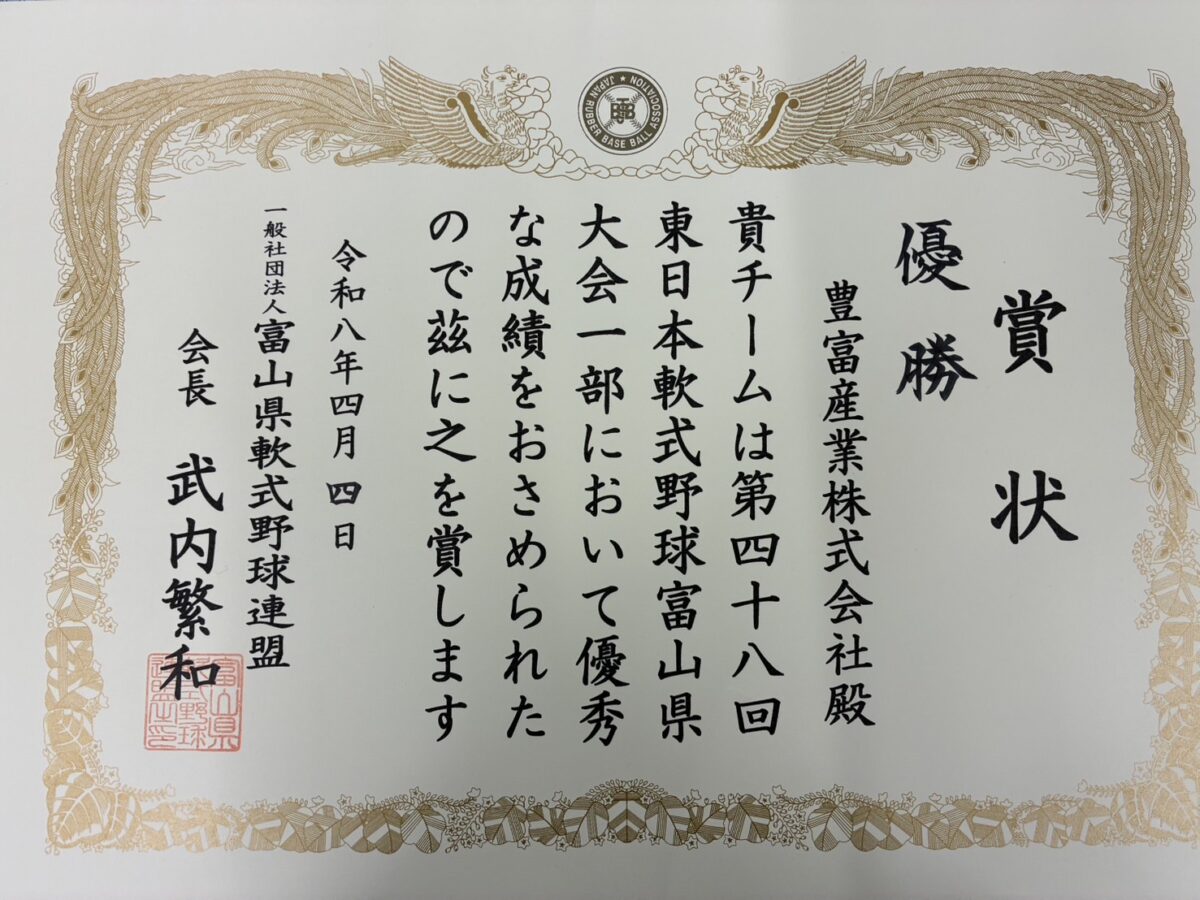 JAPAN RUBBER BASE BALL ASSOCIATION
賞状
優勝
豊富産業株式会社殿
貴チームは第四十八回
東日本軟式野球富山県
大会一部において優秀
な成績をおさめられた
ので茲に之を賞します
令和八年四月四日
一般社団法人富山県軟式野球連盟
会長 武内繁和